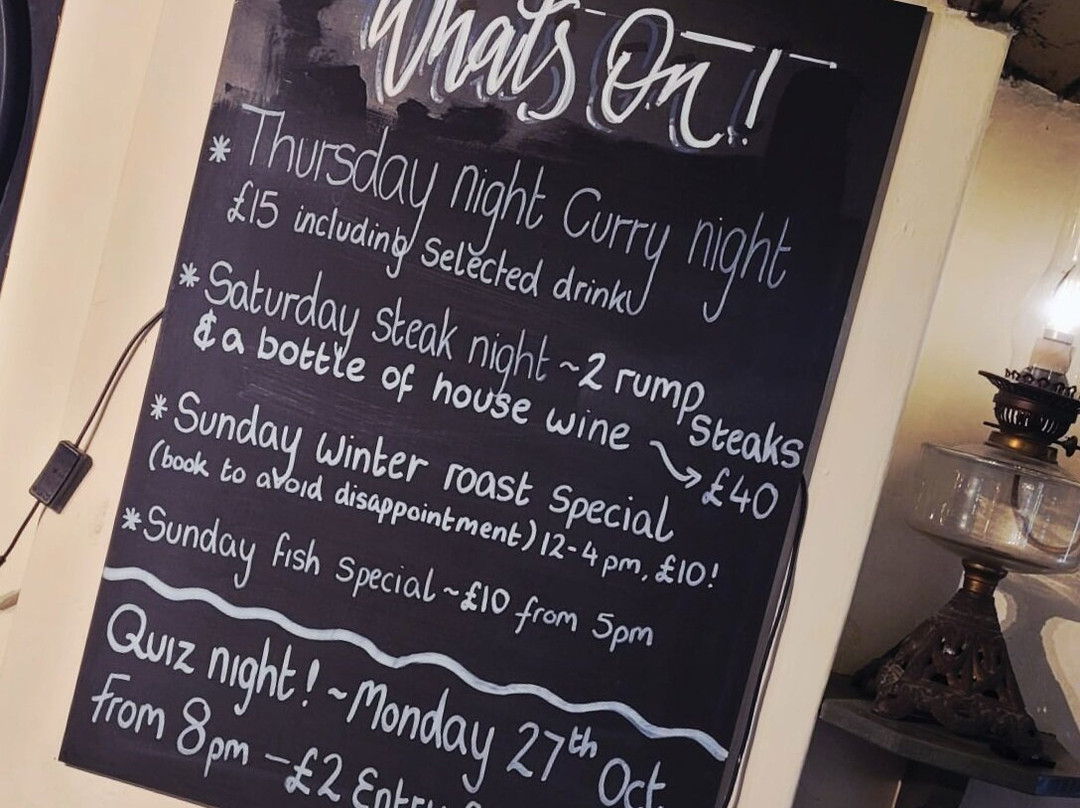 What's On!
* Thursday night Curry night
£15 including selected drink
* Saturday steak night ~ 2 rump steaks
& a bottle of house wine → £40
* Sunday Winter roast Special
(book to avoid disappointment) 12-4pm, £10!
* Sunday fish Special ~ £10 from 5pm
Quiz night! ~ Monday 27th Oct
From 8pm - £2 Entry